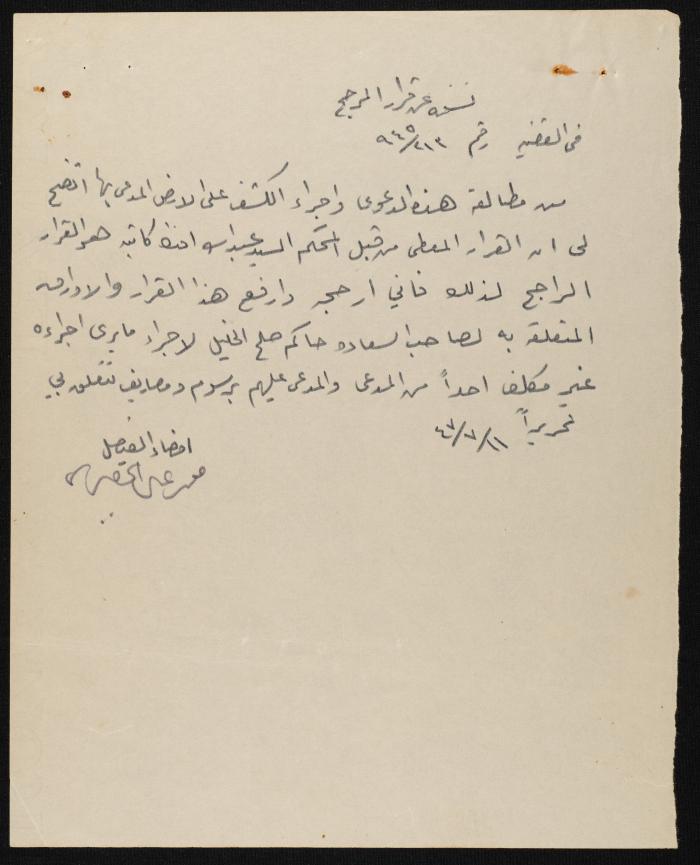 نسخة عن قرار المرجح
في القضيه رقم ٢١٣/٩٤٥
من مطالعة هذه الدعوى واجراء الكشف على الارض المدعى بها اتضح
لي ان القرار المعطى من قبل المحكم السيد عبد الله افندي كاتبه هو القرار
الراجح لذلك فاني ارجحه وارفع هذا القرار والاوراق
المتعلقة به لصاحب السعاده حاكم صلح الخليل لاجراء ما يرى اجراءه
غير مكلف احداً من المدعى والمدعى عليهم برسوم ومصاريف تتعلق بي
تحريراً ١١/٧/٤٧
امضاء الفيصل